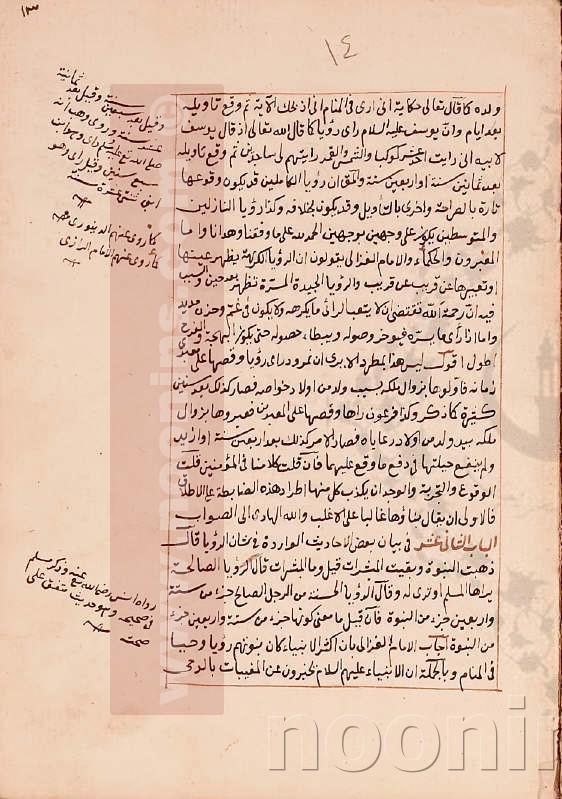 ١٣
١٤
ولده كما قال تعالى حكاية انى ارى فى المنام انى اذبحك الآية ثم وقع تاويله
بعد ايام وان يوسف عليه السلام راى رؤيا كما قال الله تعالى اذ قال يوسف
لابيه انى رايت احد عشر كوكبا والشمس والقمر رايتهم لى ساجدين ثم وقع تاويله
بعد ثمانين سنة او اربعين سنة والحق ان رؤيا الكاملين قد يكون وقوعها
تارة بالصراحة واخرى بالتأويل وقد يكون بخلافه وكذا رؤيا النازلين
والمتوسطين يكون على وجهين موجهين الحمد لله على ما وفقنا وهدانا واما
المعبرون والحكماء والامام الغزالى يقولون ان الرؤيا الكريهة يظهر عينها
او تعبيرها عن قريب عن قريب والرؤيا الجيدة المسرة تظهر بعد حين والسبب
فيه ان رحمة الله تقتضى ان لا يتعب الرائى ما يكرهه ولا يكون فى غم وحزن مديد
واما اذا راى ما يسره فيؤخر وصوله ويبطاء حصوله حتى يكون البهجة والفرح
اطول اقول ليس هذا بمطرد الا يرى ان نمرود راى رؤيا وقصها على معبرى
زمانه فاولوها بزوال ملكه بسبب ولد من اولاد خواصه فصار كذلك بعد سنين
كثيرة كما ذكر وكذا فرعون راها وقصها على المعبرين فعبروها بزوال
ملكه بيد ولد من اولاد رعاياه فصار الامر كذلك بعد اربعين سنة او ازيد
ولم ينفع حيلتها فى دفع ما وقع عليهما فان قلت كلامنا فى المؤمنين قلت
الوقوع والتجربة والوجدان يكذب كل منها اطراد هذه الضابطة على الاطلاق
فالاولى ان يقال بناؤها غالبا على الاغلب والله الهادى الى الصواب
الباب الثانى عشر فى بيان بعض الاحاديث الواردة فى شان الرؤيا قال
ذهبت النبوة وبقيت المبشرات قيل وما المبشرات قال الرؤيا الصالحة
يراها المسلم او ترى له وقال الرؤيا الحسنة من الرجل الصالح جزء من ستة
واربعين جزء من النبوة فان قيل ما معنى كونها جزء من ستة واربعين جزء
من النبوة اجاب الامام الغزالى بان اكثر الانبياء كان نبوتهم رؤيا وحيا
فى المنام وبالجملة ان الانبياء عليهم السلام يخبرون عن المغيبات بالوحى
وقيل بعد سنة وقيل بعد ثمانية
عشر سنة وروى وهب انه
سبع سنين وقيل راى وهو
ابن ثنتى عشرة سنة
كما روى عنهم الدينورى
كما روى عنهم الامام الرازى
رواه انس رضى الله تع عنه وذكر مسلم
فى صحيحه وهو حديث متفق على
صحته
www.noonins
noonin